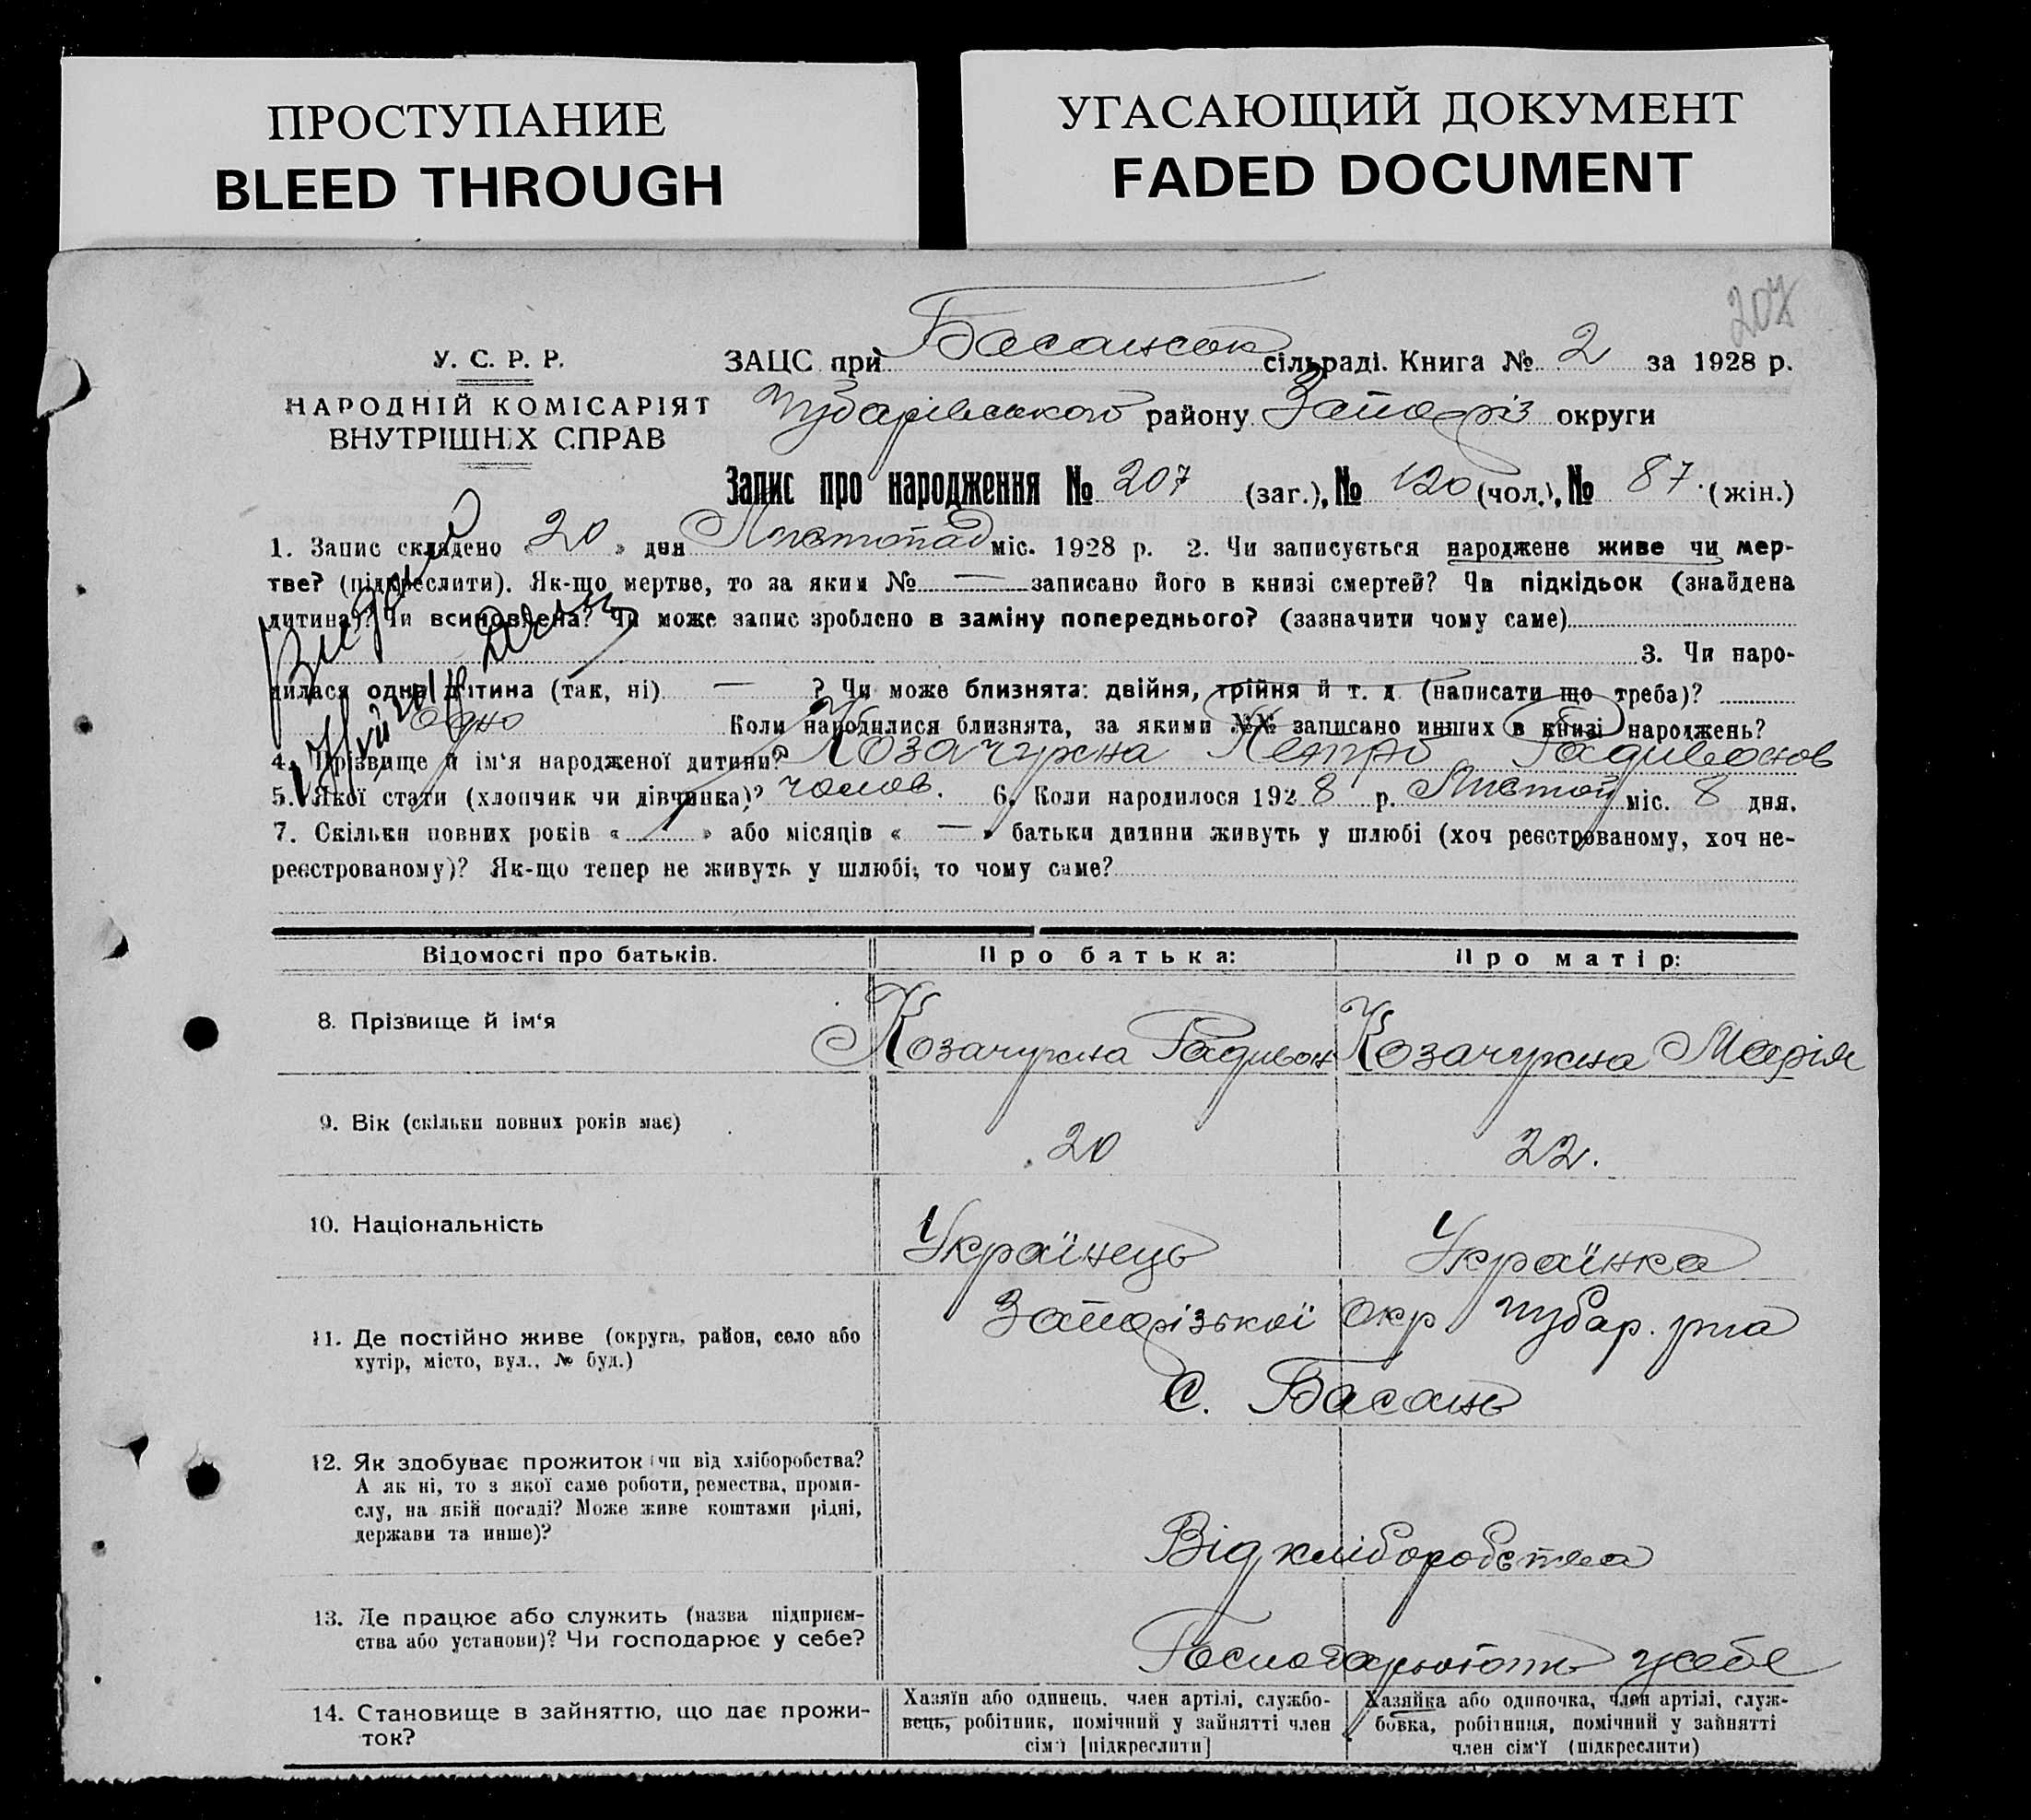 ПРОСТУПАНИЕ
BLEED THROUGH
УГАСАЮЩИЙ ДОКУМЕНТ
FADED DOCUMENT
207
У. С. Р. Р.
НАРОДНІЙ КОМІСАРІЯТ
ВНУТРІШНІХ СПРАВ
ЗАЦС при Басанськ сільраді. Книга № 2 за 1928 р.
Чубарівського району Запоріз округи
Запис про народження № 207 (заг.), № 120 (чол.), № 87. (жін.)
1. Запис складено « 20 » дня Листопад міс. 1928 р. 2. Чи записується народжене живе чи мер-
тве? (підкреслити). Як-що мертве, то за яким № — записано його в книзі смертей? Чи підкідьок (знайдена
дитина)? Чи всиновлена? Чи може запис зроблено в заміну попереднього? (зазначити чому саме)
3. Чи наро-
дилася одна дитина (так, ні) — ? Чи може близнята: двійня, трійня й т. д. (написати що треба)?
одно Коли народилися близнята, за якими №№ записано инших в книзі народжень?
4. Прізвище й ім'я народженої дитини? Козачухна Петро Радивонов
5. Якої стати (хлопчик чи дівчинка)? чолов. 6. Коли народилося 192 8 р. Листоп міс. 8 дня.
7. Скільки повних років « 1 » або місяців « — » батьки дитини живуть у шлюбі (хоч реєстрованому, хоч не-
реєстрованому)? Як-що тепер не живуть у шлюбі, то чому саме?
Відомості про батьків.
Про батька:
Про матір:
8. Прізвище й ім'я
Козачухна Радивон
Козачухна Марія
9. Вік (скільки повних років має)
20
22.
10. Національність
Українець
Українка
11. Де постійно живе (округа, район, село або
хутір, місто, вул., № буд.)
Запорізької окр Чубар. р-на
С. Басань
12. Як здобуває прожиток (чи від хліборобства?
А як ні, то з якої саме роботи, ремества, проми-
слу, на якій посаді? Може живе коштами рідні,
держави та инше)?
Від хліборобства
13. Де працює або служить (назва підприєм-
ства або установи)? Чи господарює у себе?
Господарюють у себе
14. Становище в зайняттю, що дає прожи-
ток?
Хазяїн або одинець, член артілі, службо-
вець, робітник, помічний у зайнятті член
сім'ї [підкреслити]
Хазяйка або одиночка, член артілі, служ-
бовка, робітниця, помічний у зайнятті
член сім'ї (підкреслити)